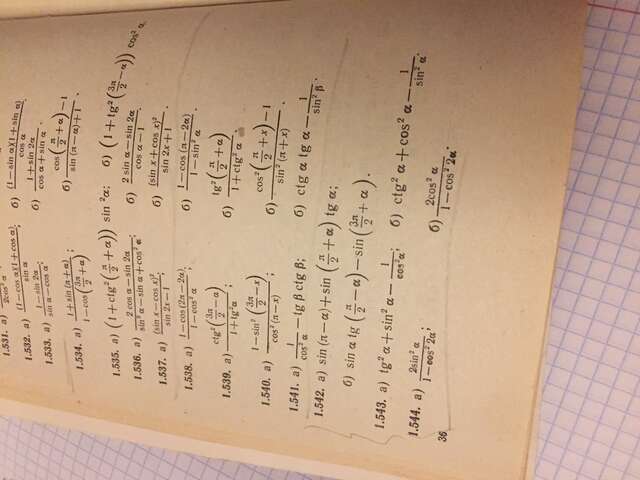 1.531. а) 2cos² α б)
1.532. а) (1 − cos α)(1 + cos α) / sin α; б) (1 − sin α)(1 + sin α) / cos α.
1.533. а) (1 − sin 2α) / (sin α − cos α); б) (1 + sin 2α) / (cos α + sin α).
1.534. а) (1 + sin(π + α)) / (1 − cos(3π/2 + α)); б) (cos(π/2 + α) − 1) / (sin(π − α) + 1).
1.535. а) (1 + ctg²(π/2 + α)) sin² α; б) (1 + tg²(3π/2 − α)) cos² α.
1.536. а) (2 cos α − sin 2α) / (sin² α − sin α + cos² α); б) (2 sin α − sin 2α) / (cos α − 1).
1.537. а) (sin x − cos x)² / (sin 2x − 1); б) (sin x + cos x)² / (sin 2x + 1).
1.538. а) (1 − cos(2π − 2α)) / (1 − cos² α); б) (1 − cos(π − 2α)) / (1 − sin² α).
1.539. а) ctg²(3π/2 − α) / (1 + tg² α); б) tg²(π/2 + α) / (1 + ctg² α).
1.540. а) (1 − sin²(3π/2 − x)) / cos²(π − x); б) (cos²(π/2 + x) − 1) / sin²(π + x).
1.541. а) 1/cos² α − tg β ctg β; б) ctg α tg α − 1/sin² β.
1.542. а) sin(π − α) + sin(π/2 + α) tg α;
б) sin α tg(π/2 − α) − sin(3π/2 + α).
1.543. а) tg² α + sin² α − 1/cos² α; б) ctg² α + cos² α − 1/sin² α.
1.544. а) 2sin² α / (1 − cos² 2α); б) 2cos² α / (1 − cos² 2α).
36